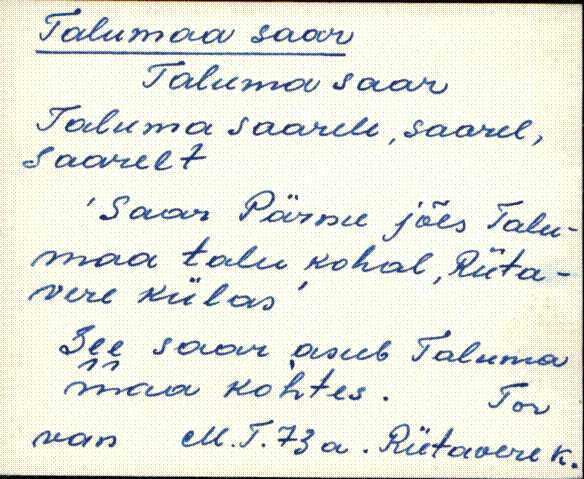 Talumaa saar
Taluma saar
Taluma saarele, saarel,
saarelt
'Saar Pärnu jões Talu-
maa talu kohal, Rüta-
vere külas'
See saar asub Taluma
maa kohtes. Tor
van M.T. 73 a. Rütavere k.